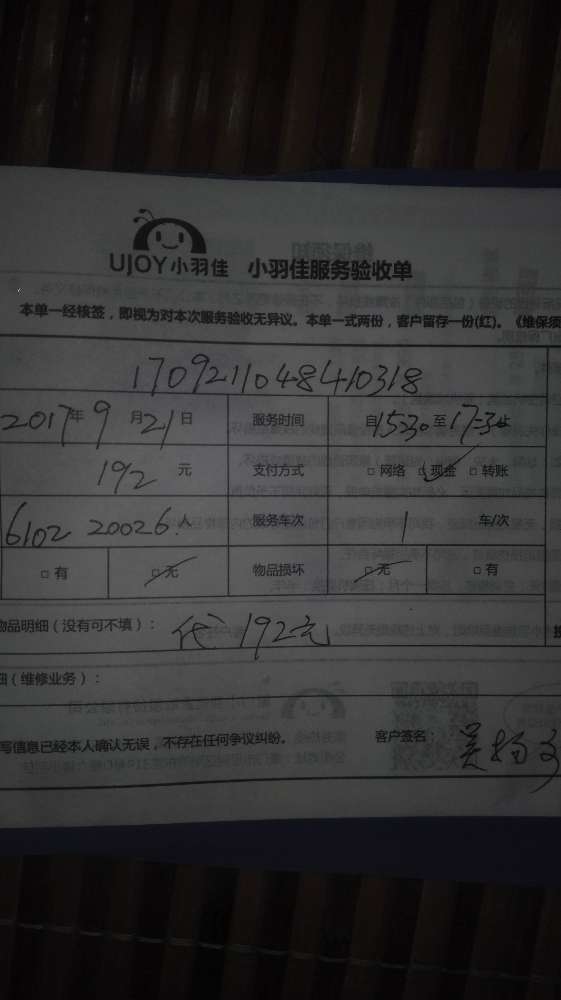 UJOY小羽佳 小羽佳服务验收单
本单一经核签，即视为对本次服务验收无异议。本单一式两份，客户留存一份(红)。《维保须
1709211048410318
2017年9月21日 服务时间 自15:30至17:30止
192元 支付方式 □网络 □现金 □转账
6102 20026.人 服务车次 1 车/次
□有 □无 物品损坏 □无 □有
物品明细（没有可不填）： 192元
（维修业务）：
写信息已经本人确认无误，不存在任何争议纠纷。 客户签名：